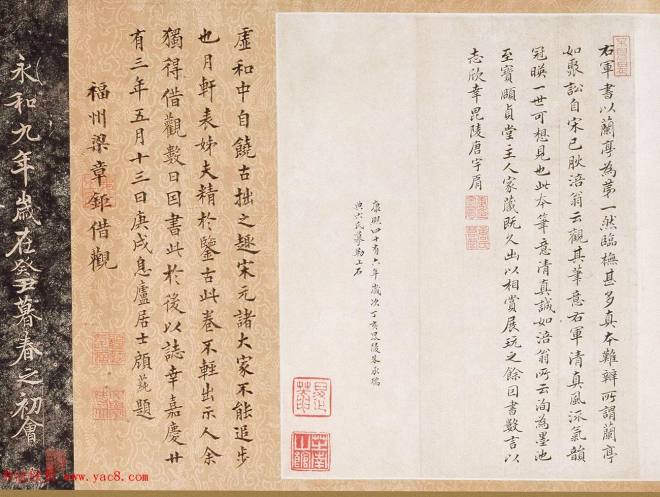 右軍書以蘭亭為第一然臨橅甚多真本難辯所謂蘭亭
如聚訟自宋已肰涪翁云觀其筆意右軍清真風流氣韻
冠暎一世可想見也此本筆意清真誠如涪翁所云洵為墨池
至寳頤貞堂主人家藏既久出以相賞展玩之餘因書數言以
志欣幸毘陵唐宇肩
康熙四十有六年歲次丁亥
典六氏摹勒上石
虛和中自饒古拙之趣宋元諸大家不能追步
也月軒表姊夫精於鑒古此卷不輕出示人余
獨得借觀數日因書此於後以誌幸嘉慶廿
有三年五月十三日庚戌息廬居士顧蒓題
福州梁章鉅借觀
永和九年歲在癸丑暮春之初會
www.yac8.com